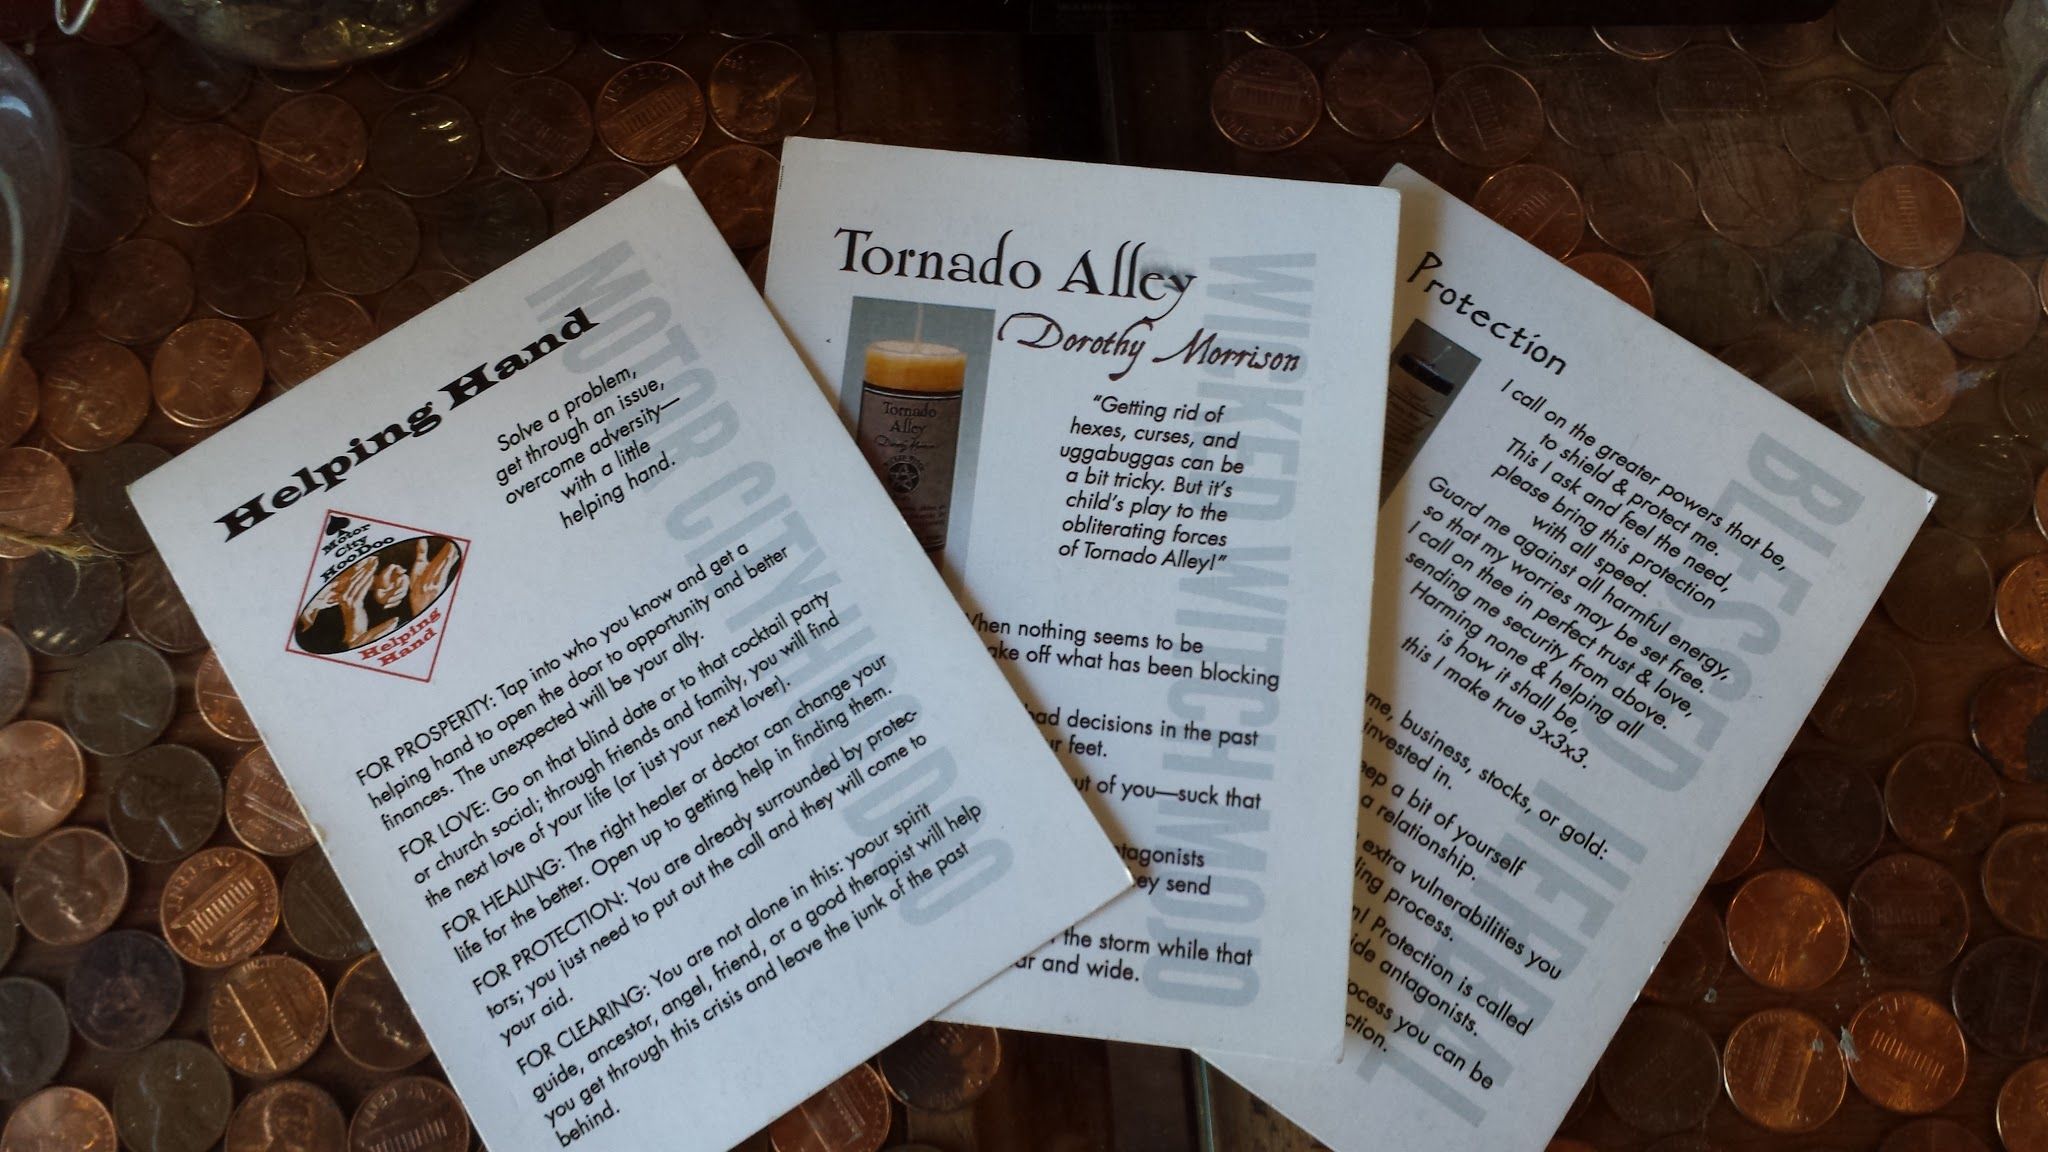 Helping Hand
MOTOR CITY HOODOO
Solve a problem,
get through an issue,
overcome adversity—
with a little
helping hand.
Motor
City
HooDoo
Helping
Hand
FOR PROSPERITY: Tap into who you know and get a
helping hand to open the door to opportunity and better
finances. The unexpected will be your ally.
FOR LOVE: Go on that blind date or to that cocktail party
or church social; through friends and family, you will find
the next love of your life (or just your next lover).
FOR HEALING: The right healer or doctor can change your
life for the better. Open up to getting help in finding them.
FOR PROTECTION: You are already surrounded by protec-
tors; you just need to put out the call and they will come to
your aid.
FOR CLEARING: You are not alone in this: yoour spirit
guide, ancestor, angel, friend, or a good therapist will help
you get through this crisis and leave the junk of the past
behind.
Tornado Alley
Dorothy Morrison
WICKED WITCH MOJO
Tornado
Alley
"Getting rid of
hexes, curses, and
uggabuggas can be
a bit tricky. But it's
child's play to the
obliterating forces
of Tornado Alley!"
When nothing seems to be
off what has been blocking
bad decisions in the past
feet.
of you—suck that
send
the storm while that
and wide.
Protection
BLESSED HERBAL
I call on the greater powers that be,
to shield & protect me.
This I ask and feel the need,
please bring this protection
with all speed.
Guard me against all harmful energy,
so that my worries may be set free.
I call on thee in perfect trust & love,
sending me security from above.
Harming none & helping all
is how it shall be,
this I make true 3x3x3.
business, stocks, or gold:
invested in.
a bit of yourself
a relationship.
extra vulnerabilities you
process.
Protection is called
antagonists.
you can be